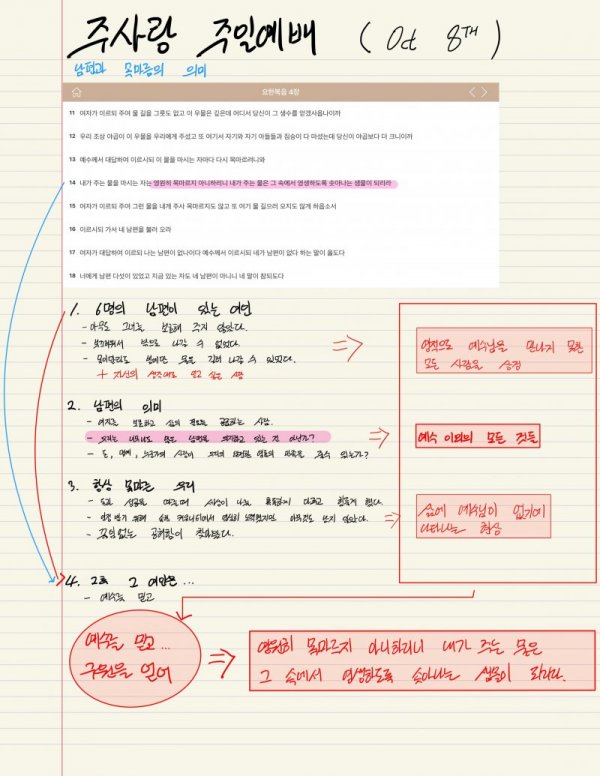 주사랑 주일예배 ( Oct 8th )
남편과 목마름의 의미
요한복음 4장
11 여자가 이르되 주여 물 길을 그릇도 없고 이 우물은 깊은데 어디서 당신이 그 생수를 얻겠사옵나이까
12 우리 조상 야곱이 이 우물을 우리에게 주셨고 또 여기서 자기와 자기 아들들과 짐승이 다 마셨는데 당신이 야곱보다 더 크니이까
13 예수께서 대답하여 이르시되 이 물을 마시는 자마다 다시 목마르려니와
14 내가 주는 물을 마시는 자는 영원히 목마르지 아니하리니 내가 주는 물은 그 속에서 영생하도록 솟아나는 샘물이 되리라
15 여자가 이르되 주여 그런 물을 내게 주사 목마르지도 않고 또 여기 물 길으러 오지도 않게 하옵소서
16 이르시되 가서 네 남편을 불러 오라
17 여자가 대답하여 이르되 나는 남편이 없나이다 예수께서 이르시되 네가 남편이 없다 하는 말이 옳도다
18 너에게 남편 다섯이 있었고 지금 있는 자도 네 남편이 아니니 네 말이 참되도다
1. 6명의 남편이 있는 여인
- 아무도 그녀를 보호해 주지 않았다.
- 밖으로 나갈 수 없었다.
+ 자신의 생각대로 믿고 싶은 사람
영적으로 예수님을 만나지 못한
모든 사람을 상징
2. 남편의 의미
- 여자를 보호하고 삶의 필요를 공급하는 사람.
- 우리는 너무나도 많은 남편을 의지하고 있는 것 아닌가?
- 돈, 명예, 누군가의 사랑이 우리의 영원한 영혼의 만족을 줄수 있는가?
예수 이외의 모든 것들
3. 항상 목마른 우리
- 돈과 성공을
- 인정 받기 위해
- 끊임없는 공허함이 찾아왔다.
삶에 예수님이 없기에
나타나는 현상
4. 그후 그 여인은 ...
- 예수를 믿고
예수를 믿고 ...
구원을 얻어
영원히 목마르지 아니하리니 내가 주는 물은
그 속에서 영생하도록 솟아나는 샘물이 되리라.